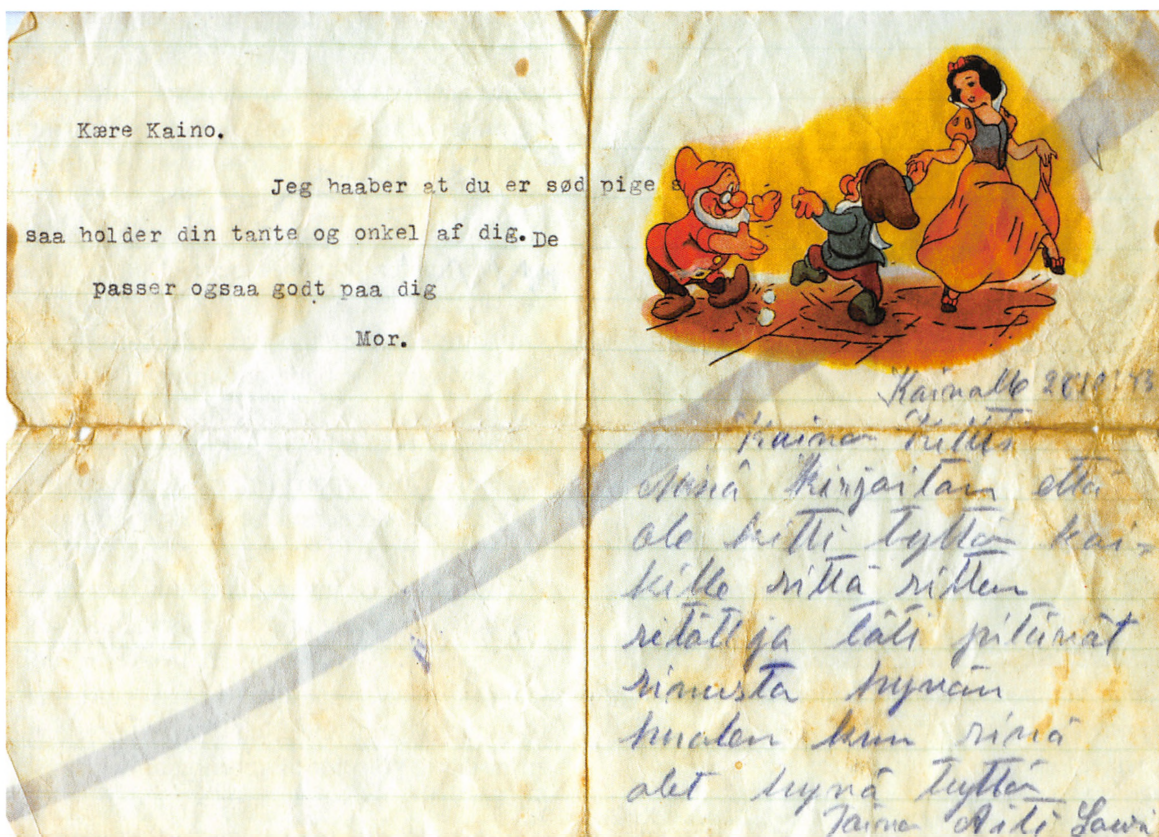 Kære Kaino.
Jeg haaber at du er sød pige s
saa holder din tante og onkel af dig. De
passer ogsaa godt paa dig
Mor.
Kainolle
Kainon
Minä kirjoitan että
ole kiltti tyttö kai-
kille sittä sitten
setät ja täti pitävät
sinusta hyvän
huolen kun sinä
olet hyvä tyttö
Äiti